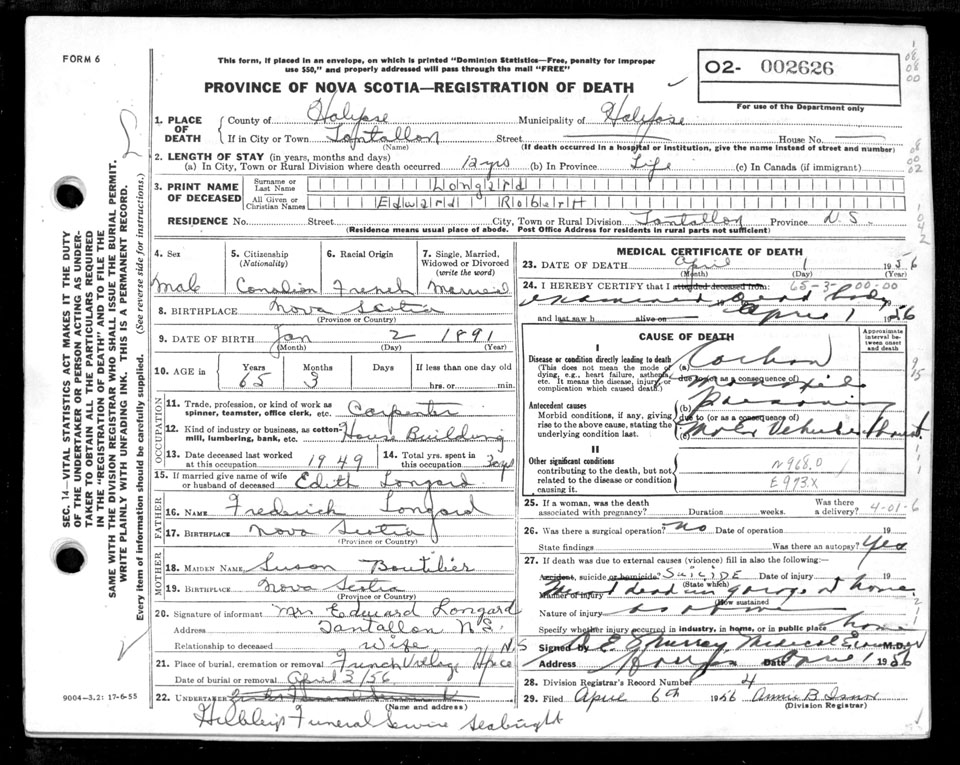 FORM 6
This form, if placed in an envelope, on which is printed "Dominion Statistics—Free, penalty for improper
use $50," and properly addressed will pass through the mail "FREE"
PROVINCE OF NOVA SCOTIA—REGISTRATION OF DEATH
O2- 002626
For use of the Department only
1. PLACE OF DEATH
County of Halifax Municipality of Halifax
If in City or Town Tantallon Street House No.
(Name) (If death occurred in a hospital or institution, give the name instead of street and number)
2. LENGTH OF STAY (in years, months and days)
(a) In City, Town or Rural Division where death occurred 12 yrs (b) In Province Life (c) In Canada (if immigrant)
3. PRINT NAME OF DECEASED
Surname or Last Name Longard
All Given or Christian Names Edward Robert
RESIDENCE No. Street City, Town or Rural Division Tantallon Province N.S.
(Residence means usual place of abode. Post Office Address for residents in rural parts not sufficient)
4. Sex
Male
5. Citizenship (Nationality)
Canadian
6. Racial Origin
French
7. Single, Married, Widowed or Divorced (write the word)
Married
8. BIRTHPLACE Nova Scotia
(Province or Country)
9. DATE OF BIRTH Jan 2 1891
(Month) (Day) (Year)
10. AGE in Years Months Days If less than one day old
65 3 hrs. or min.
OCCUPATION
11. Trade, profession, or kind of work as spinner, teamster, office clerk, etc. Carpenter
12. Kind of industry or business, as cotton-mill, lumbering, bank, etc. House Building
13. Date deceased last worked at this occupation 1949
14. Total yrs. spent in this occupation 30 yrs
15. If married give name of wife or husband of deceased Edith Longard
FATHER
16. NAME Frederick Longard
17. BIRTHPLACE Nova Scotia
(Province or Country)
MOTHER
18. MAIDEN NAME Susan Boutilier
19. BIRTHPLACE Nova Scotia
(Province or Country)
20. Signature of informant Mrs Edward Longard
Address Tantallon N.S.
Relationship to deceased Wife
21. Place of burial, cremation or removal French Village Hfx Co N.S
Date of burial or removal April 3/56
22. UNDERTAKER
(Name and address)
Funeral Service Seabright
9004-3.2: 17-6-55
SEC. 14—VITAL STATISTICS ACT MAKES IT THE DUTY
OF THE UNDERTAKER OR PERSON ACTING AS UNDER-
TAKER TO OBTAIN ALL THE PARTICULARS REQUIRED
IN THE "REGISTRATION OF DEATH" AND TO FILE THE
SAME WITH THE DIVISION REGISTRAR WHO SHALL ISSUE THE BURIAL PERMIT.
WRITE PLAINLY WITH UNFADING INK. THIS IS A PERMANENT RECORD.
Every item of information should be carefully supplied. (See reverse side for instructions.)
MEDICAL CERTIFICATE OF DEATH
23. DATE OF DEATH April 1 1956
(Month) (Day) (Year)
24. I HEREBY CERTIFY that I attended deceased from: 65-3-00-00
examined dead body
and last saw h alive on April 1 1956
CAUSE OF DEATH
Approximate interval between onset and death
I
Disease or condition directly leading to death
(This does not mean the mode of dying, e.g., heart failure, asthenia, etc. It means the disease, injury, or complication which caused death.)
(a) Carbon
due to (or as a consequence of)
Antecedent causes
Morbid conditions, if any, giving rise to the above cause, stating the underlying condition last.
(b) Poisoning
due to (or as a consequence of)
(c) Motor Vehicle Exhaust
II
Other significant conditions
contributing to the death, but not related to the disease or condition causing it.
N968.0
E973X
25. If a woman, was the death associated with pregnancy? Duration weeks. Was there a delivery? 4-01-6
26. Was there a surgical operation? No Date of operation 19
State findings Was there an autopsy? Yes
27. If death was due to external causes (violence) fill in also the following:
Accident, suicide or homicide? SUICIDE Date of injury 19
(State which)
Manner of injury dead in garage at home
(How sustained)
Nature of injury as above
Specify whether injury occurred in industry, in home, or in public place home
Signed by Murray Medical Examiner M.D.
Address Date April 1 1956
28. Division Registrar's Record Number 4
29. Filed April 6th 1956 Annie B
(Division Registrar)